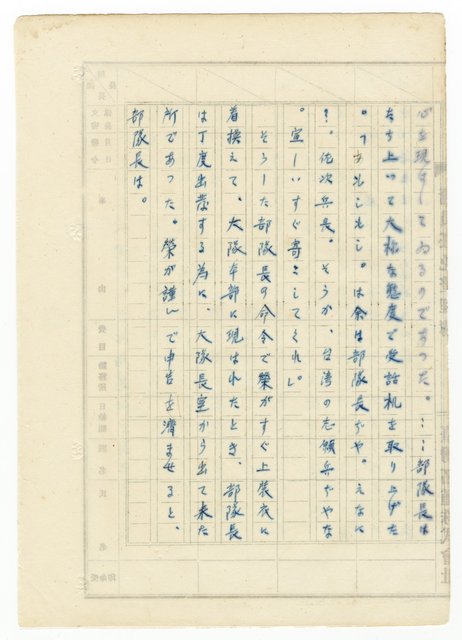 心を現はしてゐるのであつた。……部隊長は
たち上つて大様な態度で受話机を取り上げた
。「もしもし。は余は部隊長ぢや。えなに
?。佐次兵長。そうか、台湾の志願兵ぢやな
。宜しいすぐ寄こしてくれ」。
そうした部隊長の命令で榮がすぐ上裝衣に
着換えて、大隊本部に現はれたとき、部隊長
は丁度出發する為に、大隊長室から出て来た
所であつた。榮が謹んで申告を濟ませると、
部隊長は。